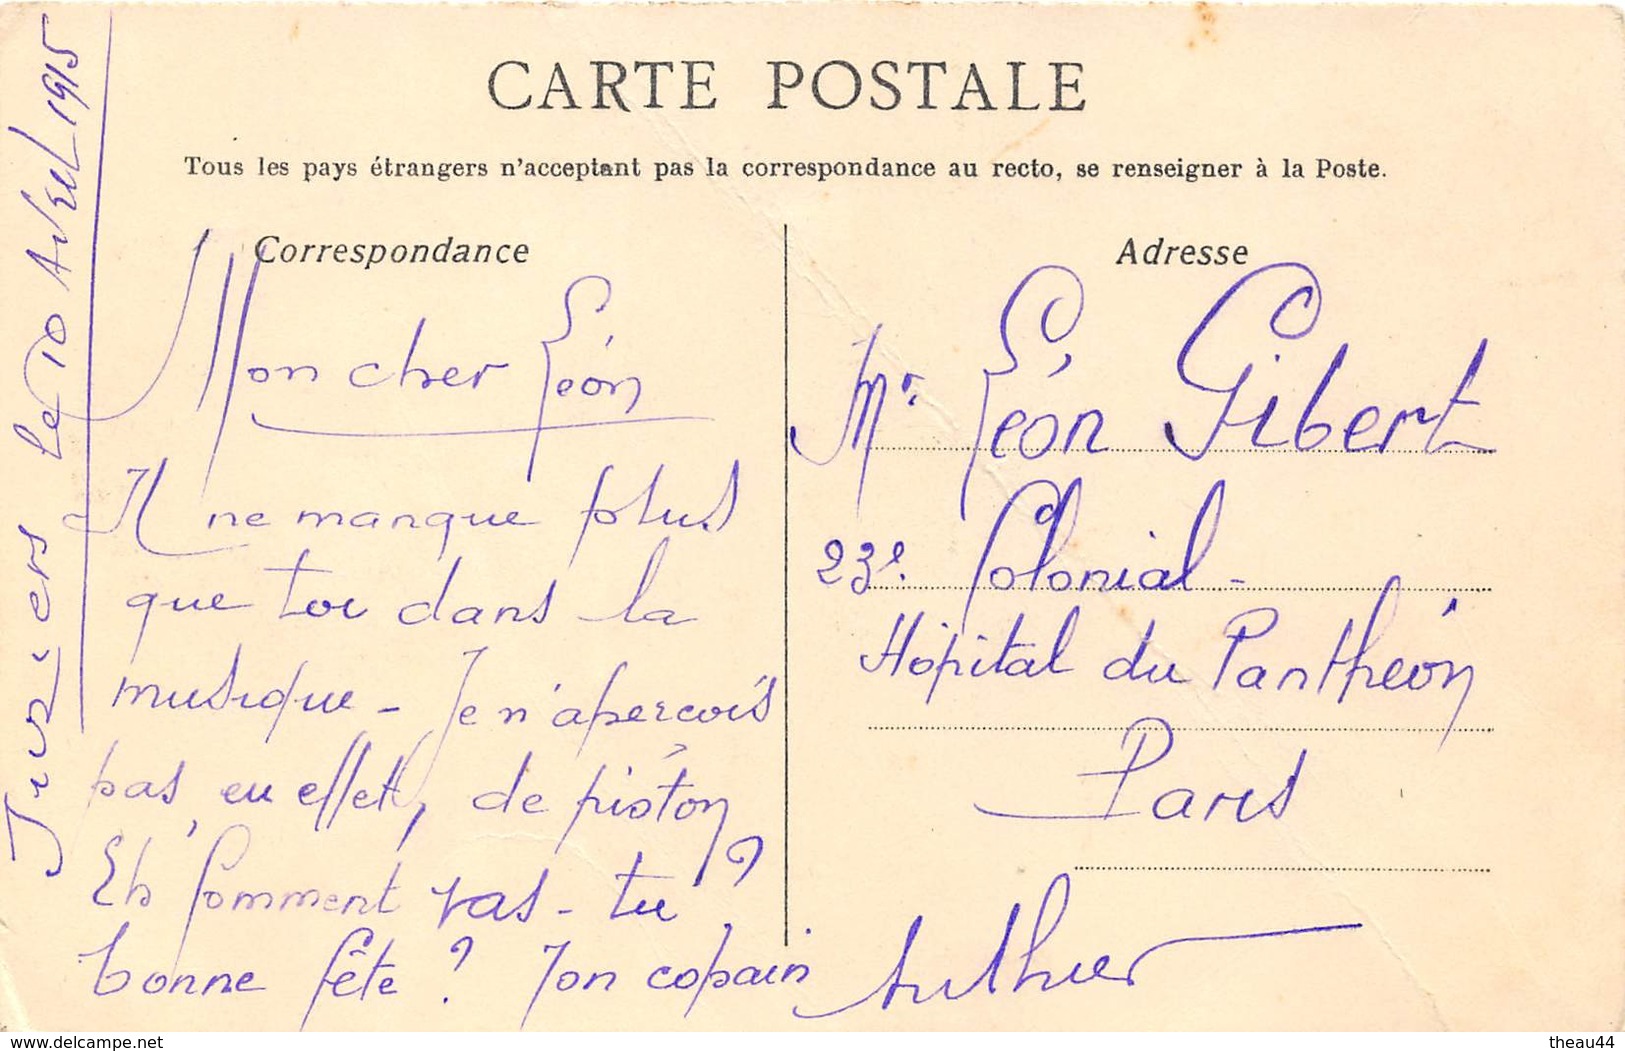 CARTE POSTALE
Tous les pays étrangers n'acceptant pas la correspondance au recto, se renseigner à la Poste.
Correspondance
Adresse
le 10 Avril 1915
Mon cher Léon
Il ne manque plus
que toi dans la
musique - Je n'aperçois
pas, en effet, de piston
Eh, Comment vas-tu ?
bonne fête ? Ton copain
Authier
Mr. Léon Gibert
23e. Colonial -
Hôpital du Panthéon
Paris
delcampe.net
theau44